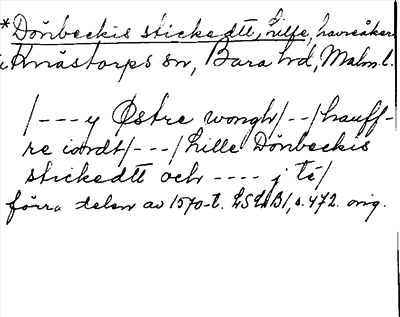 *Dönbeckis stickedtt, lille, havreåker
i Knästorps sn, Bara hd, Malm. l.
/--- y Østre wongh/--/hauff-
re iordt/---/Lille Dönbeckis
stickedtt och ---- j té/
förra delen av 1570-t. LSLB1, s. 472. orig.